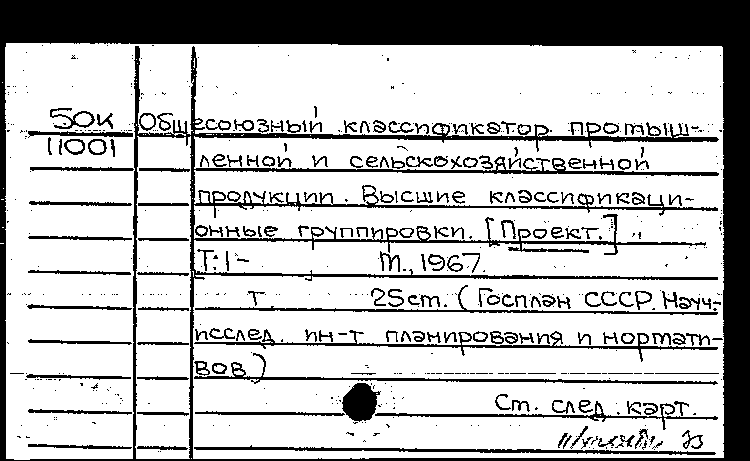 50к Общесоюзный классификатор промыш-
11001 ленной и сельскохозяйственной
продукции. Высшие классификаци-
онные группировки. [Проект.]
Т. 1- М., 1967.
т 25cm. (Госплан СССР. Науч.-
исслед. ин-т планирования и нормати-
вов)
Cm. след. карт.